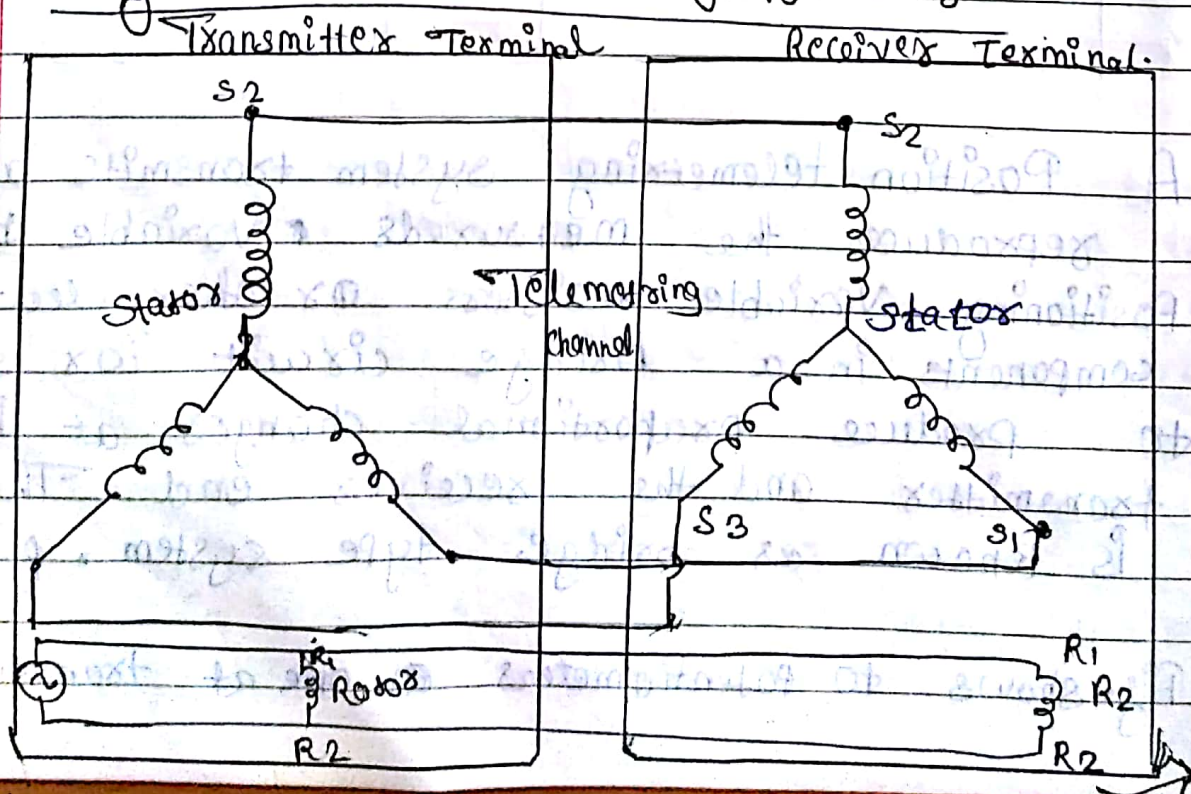 Transmitter Terminal
Receiver Terminal.
S2
S2
Stator
Telemetring
Channel
Stator
S3
S1
R1
Rotor
R2
R1
R2
R2